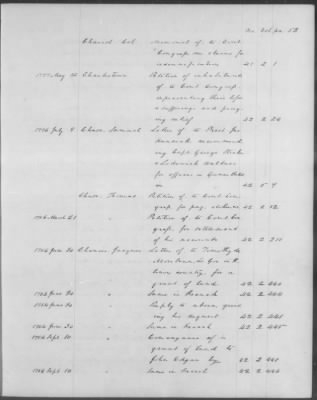 No Vol pa 52
Chariol Col. Memorial of to Cont.
Congress on claims for
indemnification 41 2 1
1777 May 12 Charlestown Petition of inhabitants
of to Cont Congress
representing their los
s sufferings and pray
ing relief 42 2 26
1776 July 9 Chase, Samuel Letter of to Presd for
Hancock recommend
ing Capt. George
& Lodowick
for offices in
42 5 9
Chase, Thomas Petition of to Cont Con
gress for pay 42 2 12
1786 March 21 " Petition of to Cont Con
gress for settlement
of his accounts 42 2 210
1784 June 30 Letter of to Timothy de
Montbrun, Lt Gov in
country for a
grant of land 42 2 440
1784 June 30 " Same in French 42 2 444
1784 June 30 " Reply to above grant
ing his request 42 2 441
1784 June 30 " Same in French 42 2 445
1784 Sept. 10 " Conveyance of a
grant of land to
John Edgar by 42 2 441
1784 Sept. 10 " Same in French 42 2 444